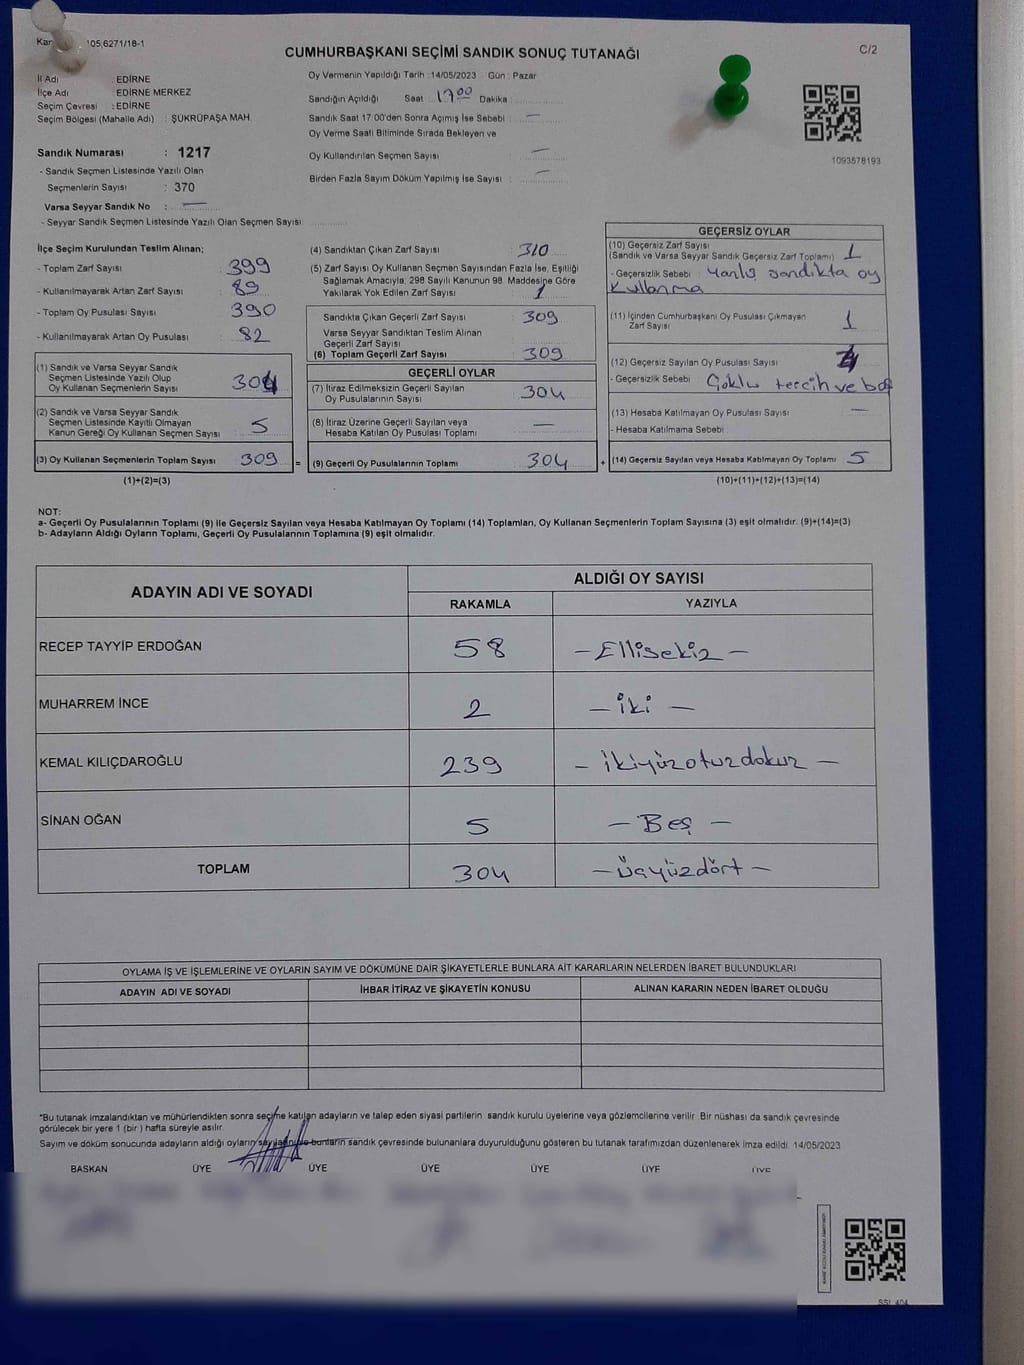 105,6271/18-1
CUMHURBAŞKANI SEÇİMİ SANDIK SONUÇ TUTANAĞI
C/2
İl Adı : EDİRNE
İlçe Adı : EDİRNE MERKEZ
Seçim Çevresi : EDİRNE
Seçim Bölgesi (Mahalle Adı) : ŞÜKRÜPAŞA MAH.
Sandık Numarası : 1217
- Sandık Seçmen Listesinde Yazılı Olan
Seçmenlerin Sayısı : 370
Varsa Seyyar Sandık No : —
- Seyyar Sandık Seçmen Listesinde Yazılı Olan Seçmen Sayısı
Oy Vermenin Yapıldığı Tarih : 14/05/2023 Gün : Pazar
Sandığın Açıldığı Saat : 17 00 Dakika :
Sandık Saat 17.00'den Sonra Açımış İse Sebebi : —
Oy Verme Saati Bitiminde Sırada Bekleyen ve
Oy Kullandırılan Seçmen Sayısı : —
Birden Fazla Sayım Döküm Yapılmış İse Sayısı : —
1093578193
İlçe Seçim Kurulundan Teslim Alınan;
- Toplam Zarf Sayısı : 399
- Kullanılmayarak Artan Zarf Sayısı : 89
- Toplam Oy Pusulası Sayısı : 390
- Kullanılmayarak Artan Oy Pusulası : 82
(1) Sandık ve Varsa Seyyar Sandık
Seçmen Listesinde Yazılı Olup
Oy Kullanan Seçmenlerin Sayısı : 304
(2) Sandık ve Varsa Seyyar Sandık
Seçmen Listesinde Kayıtlı Olmayan
Kanun Gereği Oy Kullanan Seçmen Sayısı : 5
(3) Oy Kullanan Seçmenlerin Toplam Sayısı : 309 =
(1)+(2)=(3)
(4) Sandıktan Çıkan Zarf Sayısı : 310
(5) Zarf Sayısı Oy Kullanan Seçmen Sayısından Fazla İse, Eşitliği
Sağlamak Amacıyla, 298 Sayılı Kanunun 98. Maddesine Göre
Yakılarak Yok Edilen Zarf Sayısı : 1
Sandıkta Çıkan Geçerli Zarf Sayısı : 309
Varsa Seyyar Sandıktan Teslim Alınan
Geçerli Zarf Sayısı
(6) Toplam Geçerli Zarf Sayısı : 309
GEÇERLİ OYLAR
(7) İtiraz Edilmeksizin Geçerli Sayılan
Oy Pusulalarının Sayısı : 304
(8) İtiraz Üzerine Geçerli Sayılan veya
Hesaba Katılan Oy Pusulası Toplamı : —
(9) Geçerli Oy Pusulalarının Toplamı : 304 +
GEÇERSİZ OYLAR
(10) Geçersiz Zarf Sayısı
(Sandık ve Varsa Seyyar Sandık Geçersiz Zarf Toplamı) : 1
- Geçersizlik Sebebi : Yanlış sandıkta oy
kullanma
(11) İçinden Cumhurbaşkanı Oy Pusulası Çıkmayan
Zarf Sayısı : 1
(12) Geçersiz Sayılan Oy Pusulası Sayısı :
- Geçersizlik Sebebi : Çoklu tercih ve boş
(13) Hesaba Katılmayan Oy Pusulası Sayısı : —
- Hesaba Katılmama Sebebi
(14) Geçersiz Sayılan veya Hesaba Katılmayan Oy Toplamı : 5
(10)+(11)+(12)+(13)=(14)
NOT:
a- Geçerli Oy Pusulalarının Toplamı (9) ile Geçersiz Sayılan veya Hesaba Katılmayan Oy Toplamı (14) Toplamları, Oy Kullanan Seçmenlerin Toplam Sayısına (3) eşit olmalıdır. (9)+(14)=(3)
b- Adayların Aldığı Oyların Toplamı, Geçerli Oy Pusulalarının Toplamına (9) eşit olmalıdır.
ADAYIN ADI VE SOYADI
ALDIĞI OY SAYISI
RAKAMLA YAZIYLA
RECEP TAYYİP ERDOĞAN 58 – Ellisekiz –
MUHARREM İNCE 2 – iki –
KEMAL KILIÇDAROĞLU 239 – ikiyüzotuzdokuz –
SİNAN OĞAN 5 – Beş –
TOPLAM 304 – üçyüzdört –
OYLAMA İŞ VE İŞLEMLERİNE VE OYLARIN SAYIM VE DÖKÜMÜNE DAİR ŞİKAYETLERLE BUNLARA AİT KARARLARIN NELERDEN İBARET BULUNDUKLARI
ADAYIN ADI VE SOYADI İHBAR İTİRAZ VE ŞİKAYETİN KONUSU ALINAN KARARIN NEDEN İBARET OLDUĞU
"Bu tutanak imzalandıktan ve mühürlendikten sonra seçime katılan adayların ve talep eden siyasi partilerin sandık kurulu üyelerine veya gözlemcilerine verilir. Bir nüshası da sandık çevresinde
görülecek bir yere 1 (bir) hafta süreyle asılır.
Sayım ve döküm sonucunda adayların aldığı oyların sayılarını ve bunların sandık çevresinde bulunanlara duyurulduğunu gösteren bu tutanak tarafımızdan düzenlenerek imza edildi. 14/05/2023
BAŞKAN ÜYE ÜYE ÜYE ÜYE ÜYE ÜYE